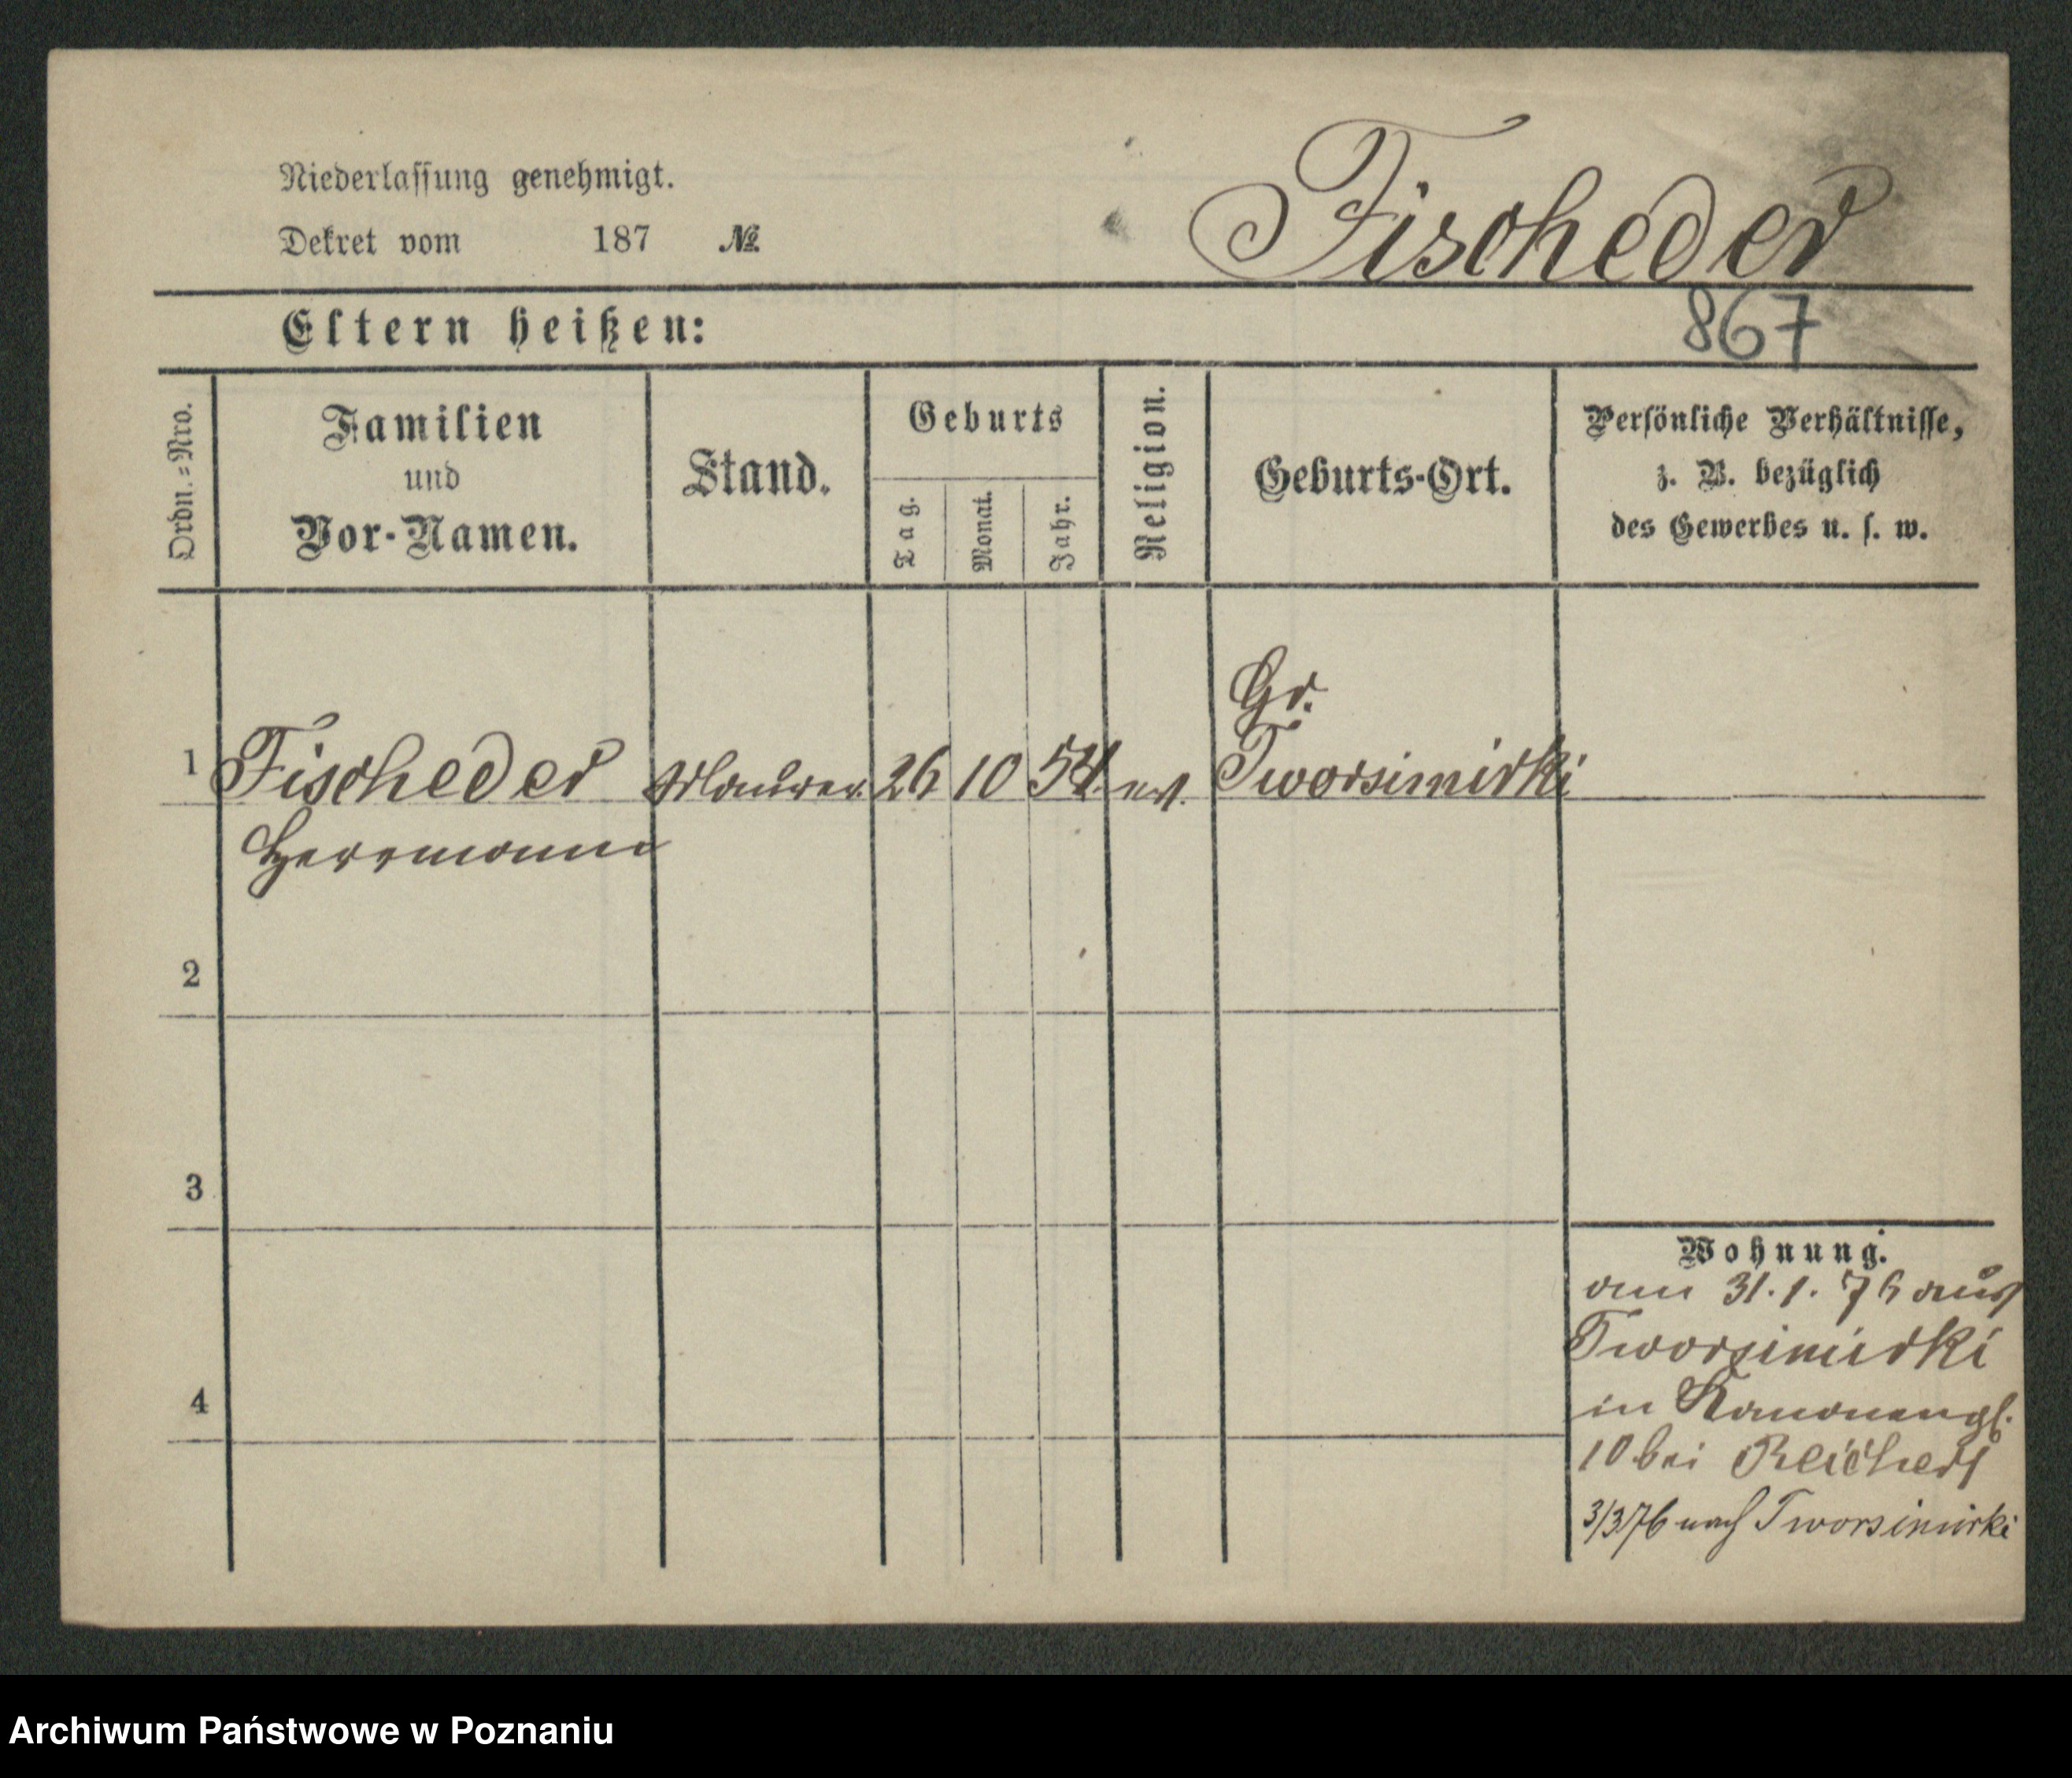 Niederlassung genehmigt.
Dekret vom 187 №
Fischeder
Eltern heißen:
867
Ordn.=Nro.
Familien
und
Vor-Namen.
Stand.
Geburts
Tag.
Monat.
Jahr.
Religion.
Geburts-Ort.
Persönliche Verhältnisse,
z. B. bezüglich
des Gewerbes u. s. w.
Gr.
1 Fischeder Maurer 26 10 54. ev. Tworsimirki
Herrmann
2
3
4
Wohnung.
am 31. 1. 76 aus
Tworsimirki
in Kanonengl.
10 bei Reichert
3/3 76 nach Tworsimirki
Archiwum Państwowe w Poznaniu